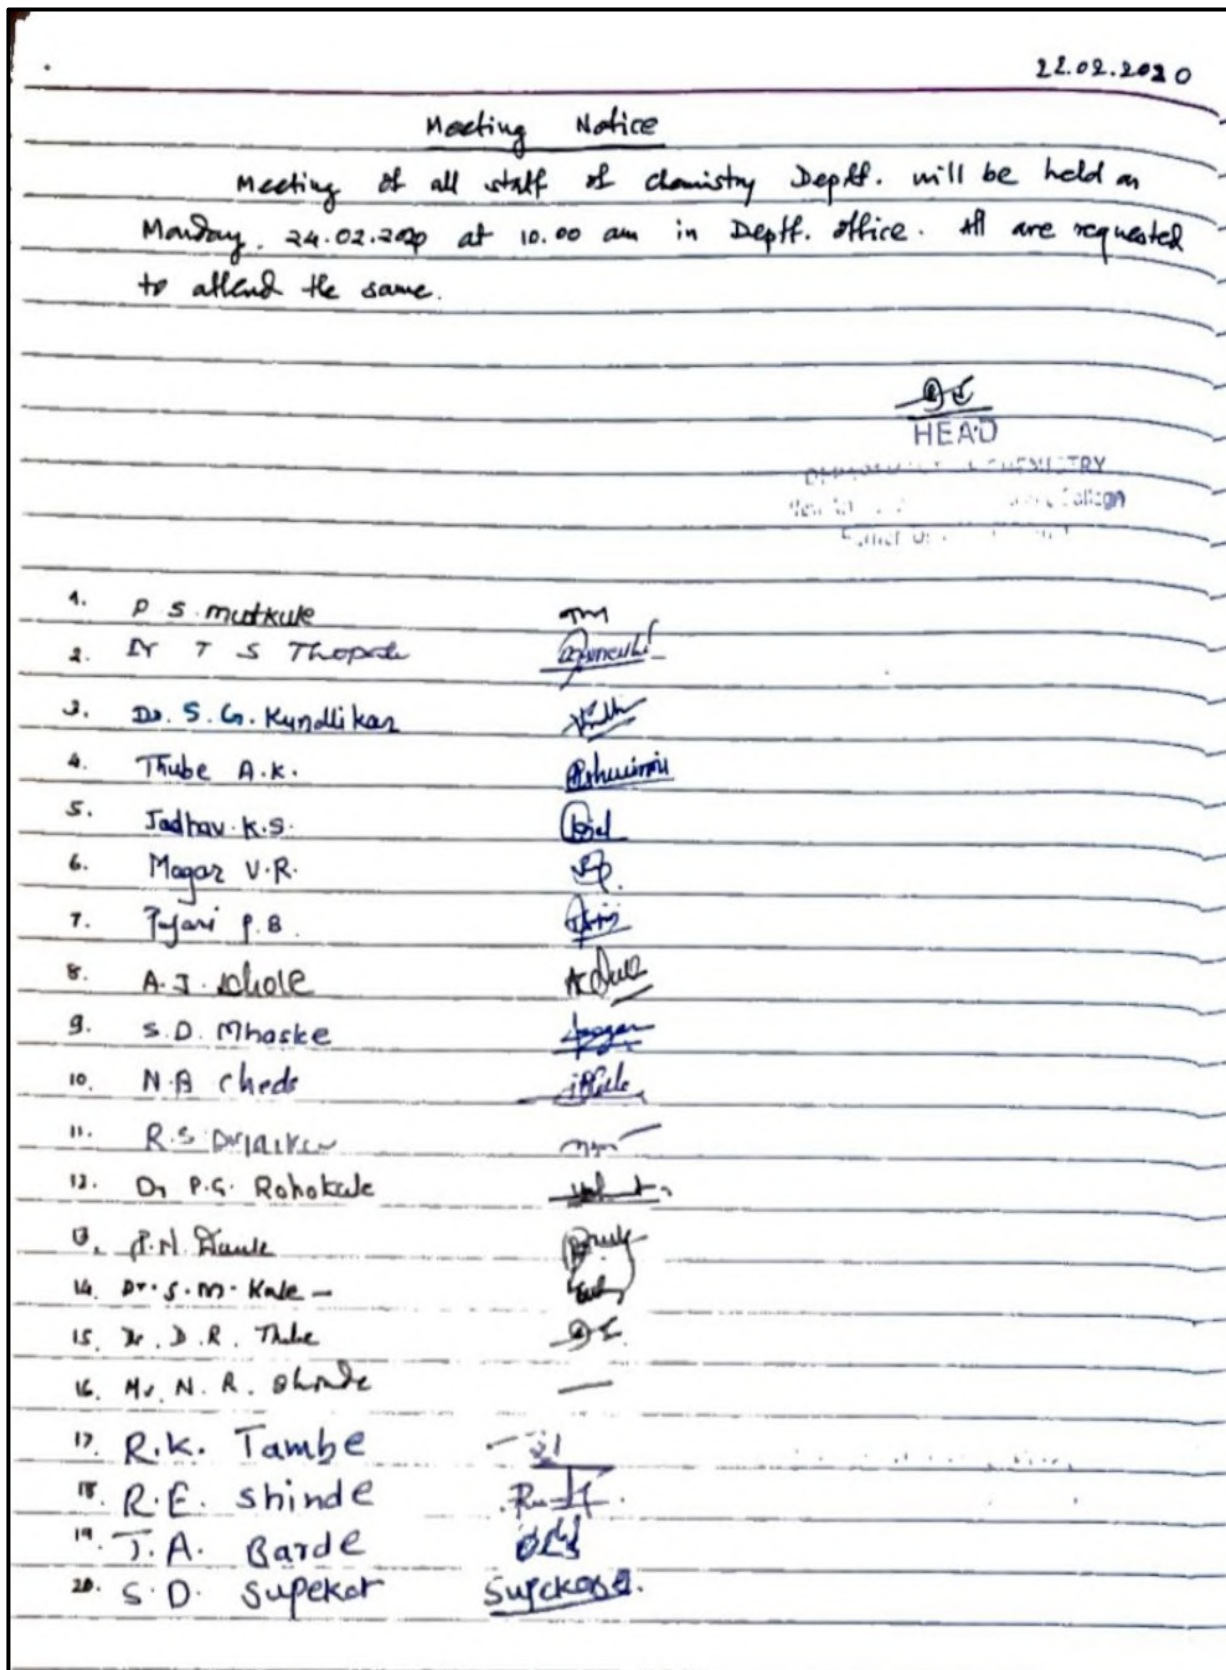 22.02.2020
Meeting Notice
Meeting of all staff of chemistry Deptt. will be held on
Monday, 24.02.2020 at 10.00 am in Deptt. office. All are requested
to attend the same.
HEAD
CHEMISTRY
1. P S. mutkule
2. Dr T S Thopate
3. Dr. S. G. Kundlikar
4. Thube A.K. Ashwini
5. Jadhav K.S.
6. Magar V.R.
7. Pujari P.B.
8. A.J.
9. S.D. Mhaske
10. N.B
11. R.S.
12. Dr P.G. Rohokale
13. P.N.
14. Dr. S. M. Kale -
15. Dr. D. R. Thube
16. Mr. N. R. Shinde
17. R.K. Tambe
18. R.E. Shinde
19. T.A. Barde
20. S.D. Supekar